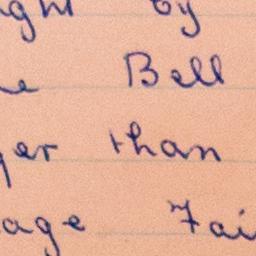 ght by
e Bell
ger than
age Fai